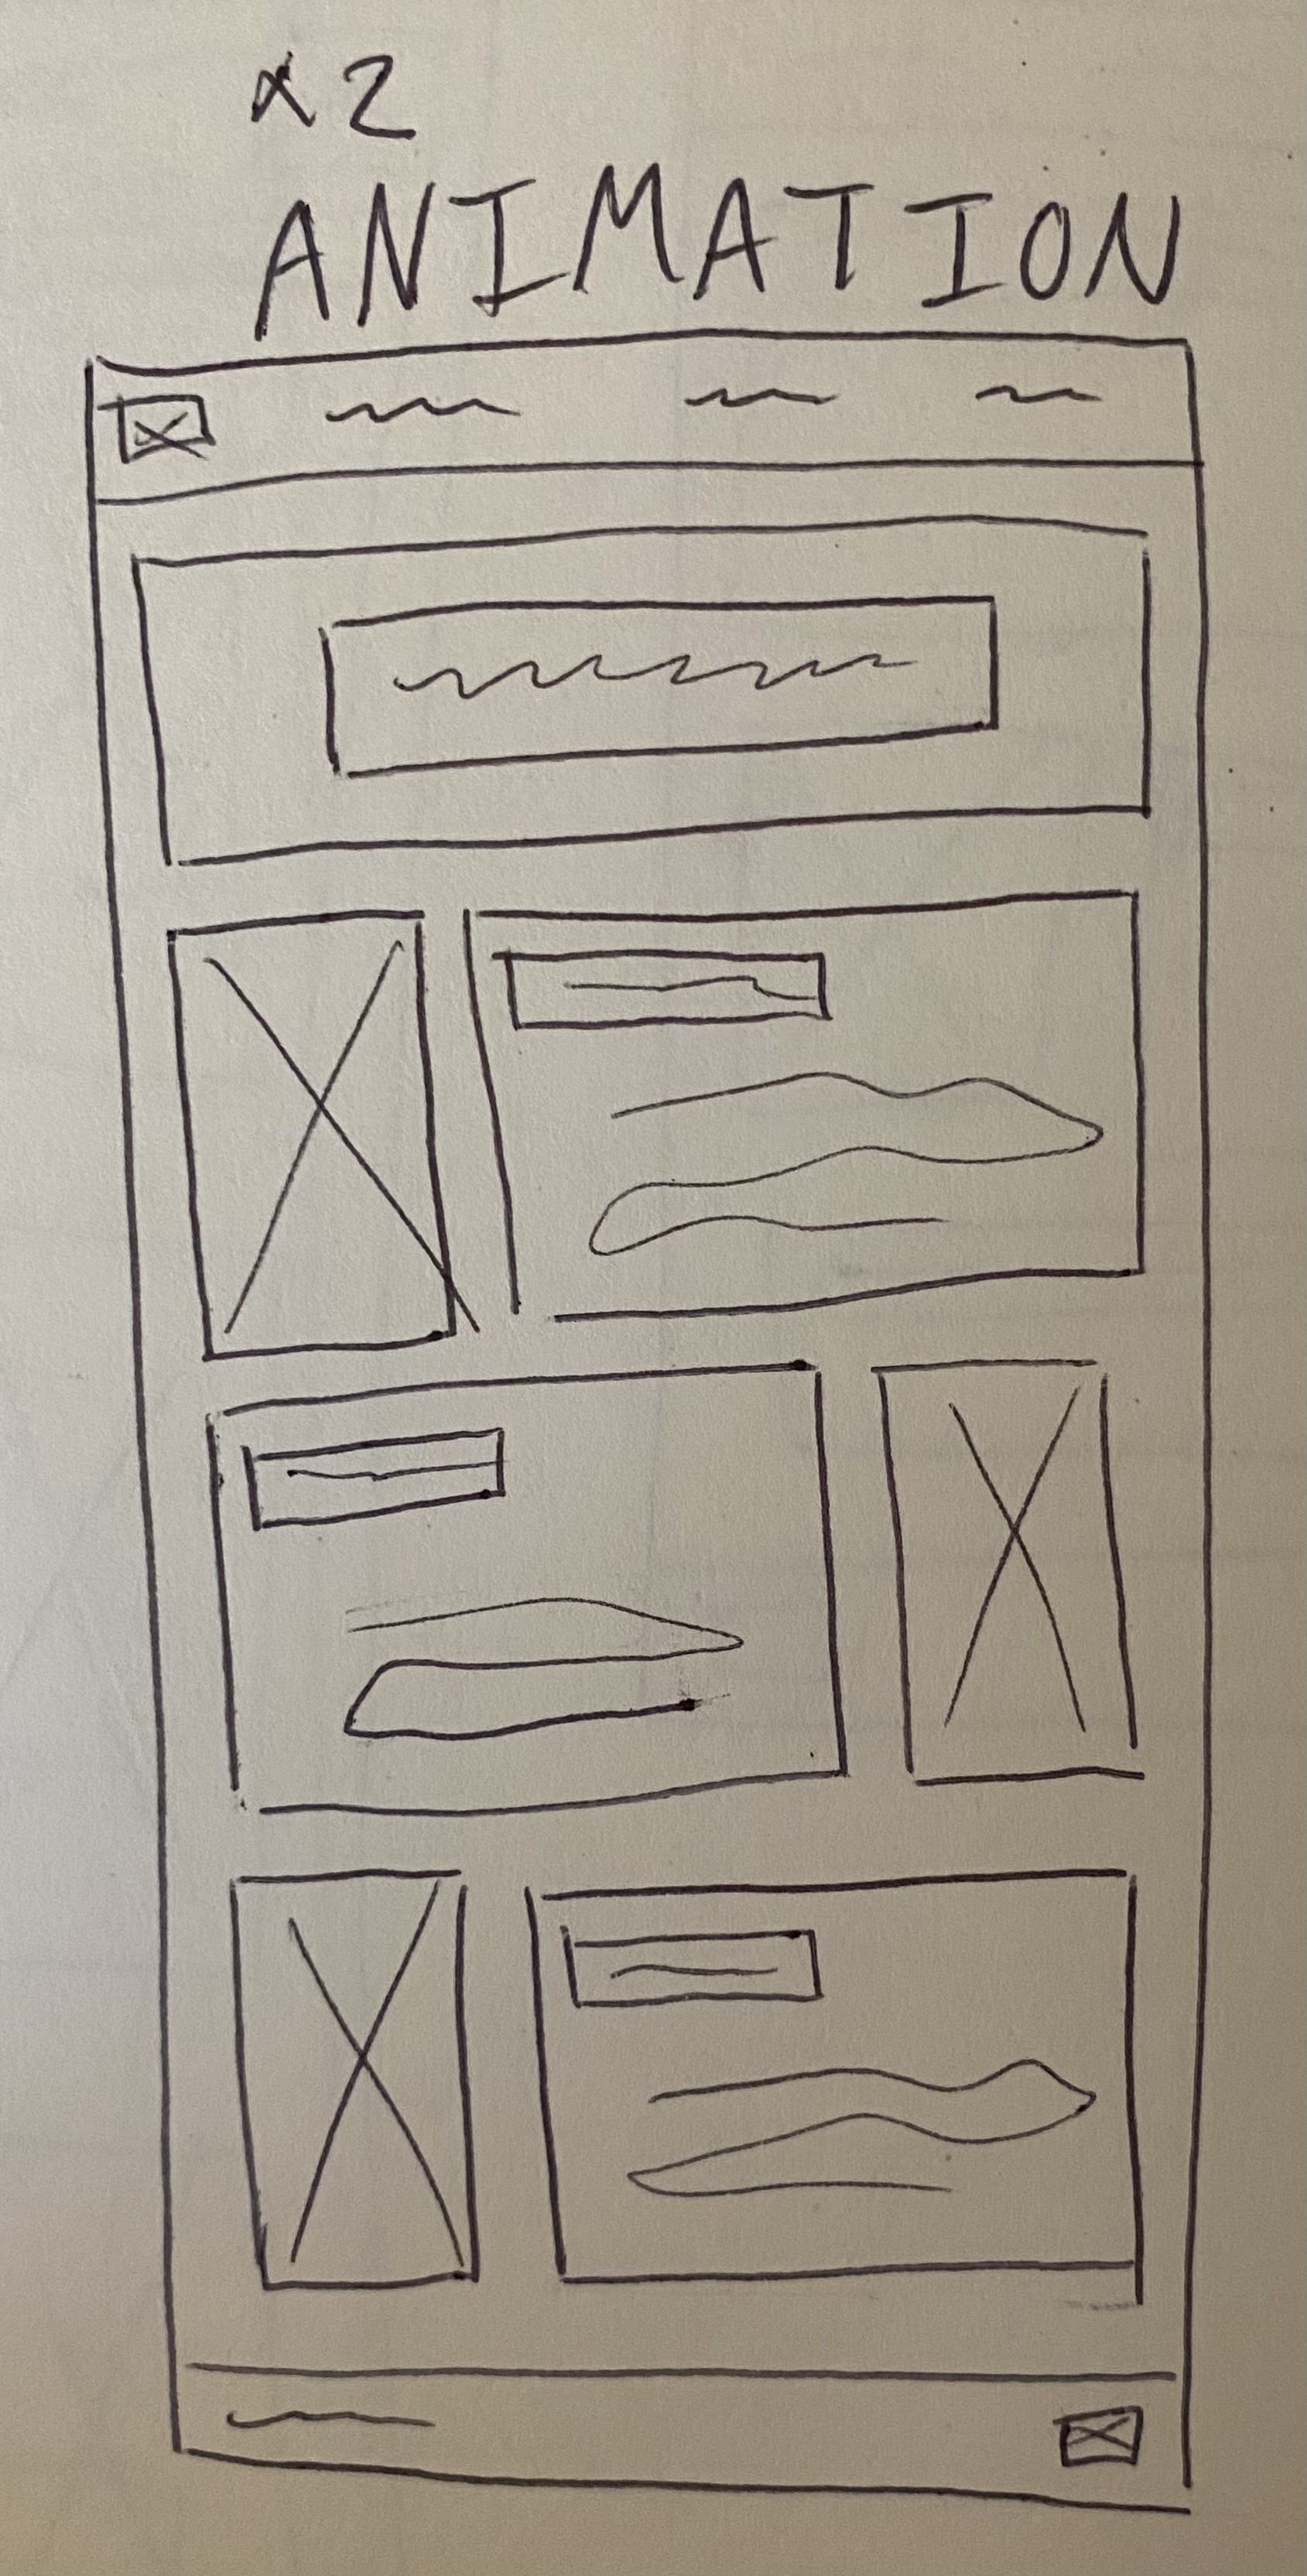 x2
ANIMATION